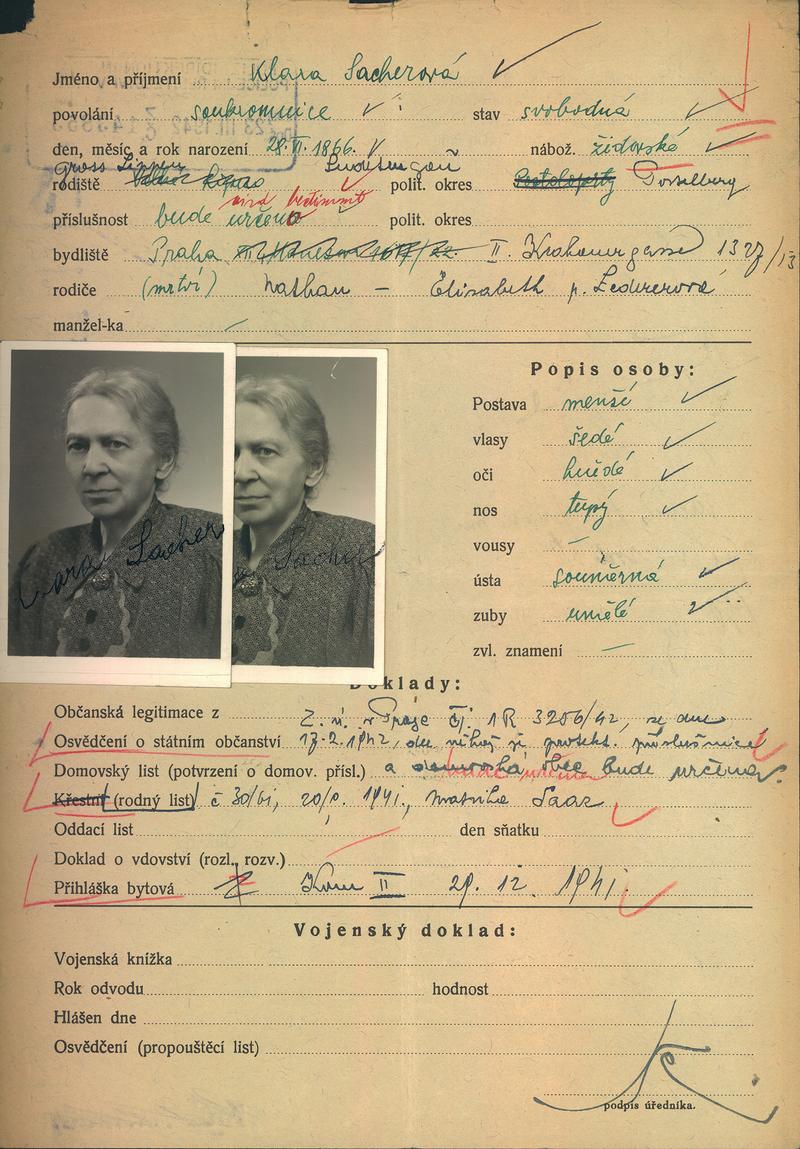 Jméno a příjmení Klara Sacherová
povolání soukromnice stav svobodná
den, měsíc a rok narození 28. VI. 1866. nábož. židovské
Gross Lippen Sudetengau
rodiště polit. okres Postoloprty
wird bestimmt
příslušnost bude určeno polit. okres
bydliště Praha II. Krakauergasse 1327/13
rodiče (mrtví) Nathan – Elisabeth r. Ledererová
manžel-ka –
Popis osoby:
Postava menší
vlasy šedé
oči hnědé
nos tupý
vousy –
ústa souměrná
zuby umělé
zvl. znamení –
Klara Sacher
Doklady:
Občanská legitimace z Z. ú. v Praze čj. 1R 3256/42, ze dne
Osvědčení o státním občanství 17.2.1942, dle něhož je protekt. příslušnicí
Domovský list (potvrzení o domov. přísl.) a domovská obec bude určena.
Křestní (rodný list) č 30/bi, 20/ . 1941, matrika Saaz
Oddací list den sňatku
Doklad o vdovství (rozl., rozv.)
Přihláška bytová Kom II 29. 12. 1941.
Vojenský doklad:
Vojenská knížka
Rok odvodu hodnost
Hlášen dne
Osvědčení (propouštěcí list)
podpis úředníka.